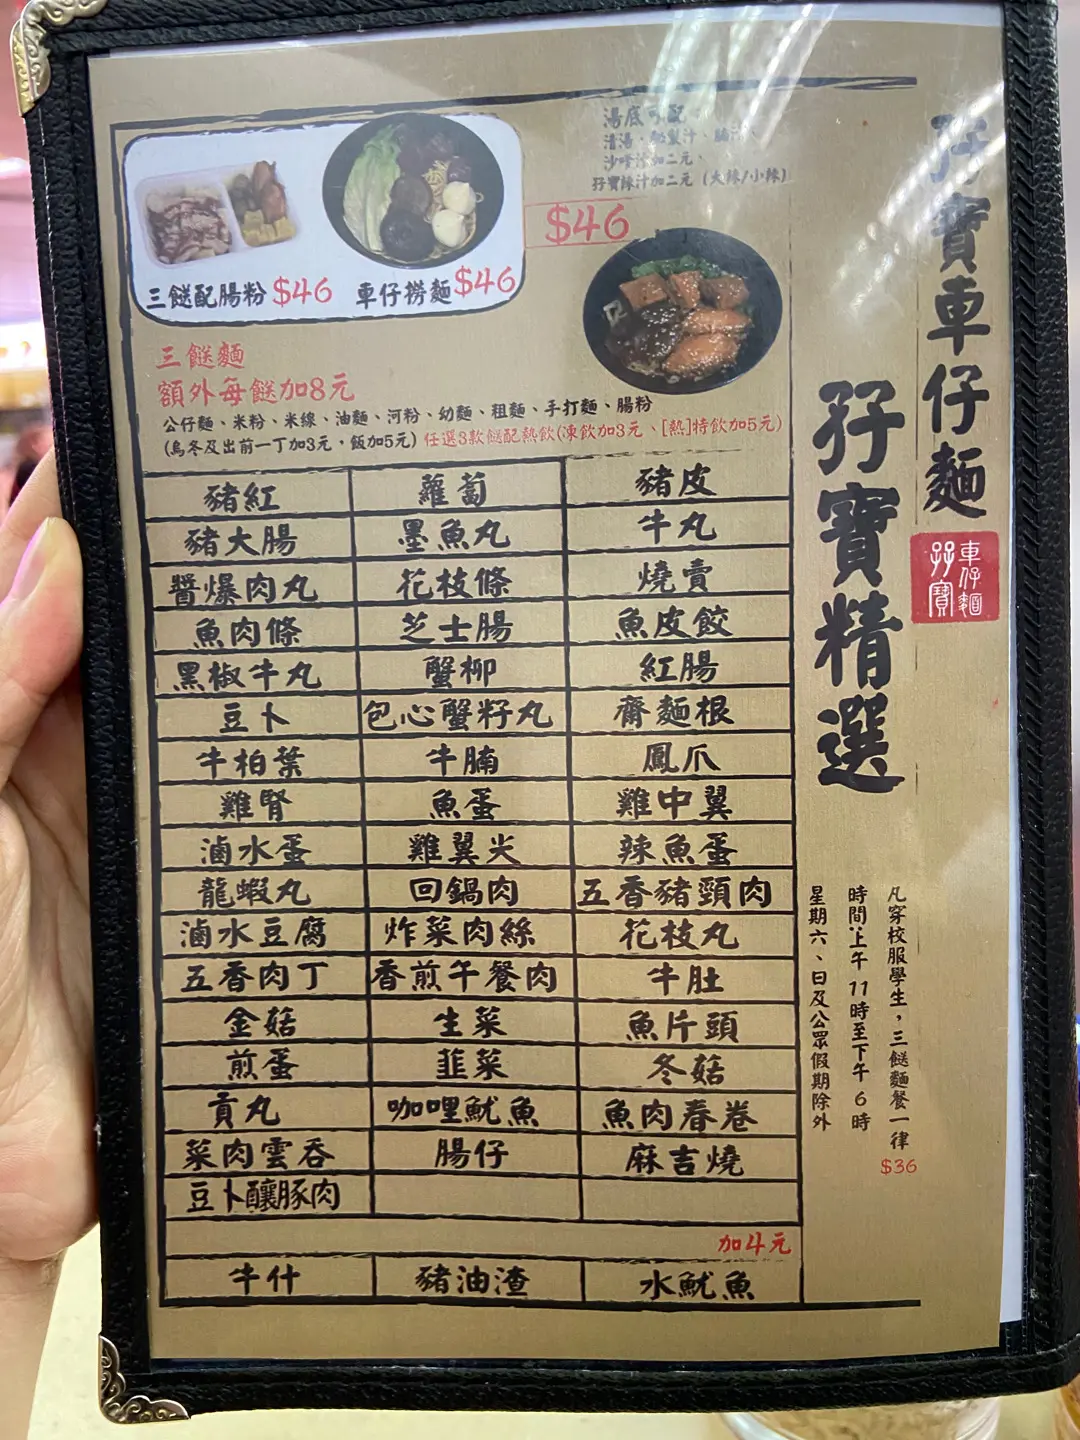 孖寶車仔麵
孖寶精選
車仔麵
孖寶
湯底可配
清湯、秘製汁、腩汁、
沙嗲汁加二元、
孖寶辣汁加二元（大辣/小辣）
$46
三餸配腸粉 $46 車仔撈麵 $46
三餸麵
額外每餸加8元
公仔麵、米粉、米線、油麵、河粉、幼麵、粗麵、手打麵、腸粉
(烏冬及出前一丁加3元，飯加5元) 任選3款餸配熱飲(凍飲加3元、[熱]特飲加5元)
豬紅 蘿蔔 豬皮
豬大腸 墨魚丸 牛丸
醬爆肉丸 花枝條 燒賣
魚肉條 芝士腸 魚皮餃
黑椒牛丸 蟹柳 紅腸
豆卜 包心蟹籽丸 齋麵根
牛柏葉 牛腩 鳳爪
雞腎 魚蛋 雞中翼
滷水蛋 雞翼尖 辣魚蛋
龍蝦丸 回鍋肉 五香豬頸肉
滷水豆腐 炸菜肉絲 花枝丸
五香肉丁 香煎午餐肉 牛肚
金菇 生菜 魚片頭
煎蛋 韭菜 冬菇
貢丸 咖哩魷魚 魚肉春卷
菜肉雲吞 腸仔 麻吉燒
豆卜釀豚肉
加4元
牛什 豬油渣 水魷魚
凡穿校服學生，三餸麵餐一律
$36
時間:上午 11時至下午 6 時
星期六、日及公眾假期除外